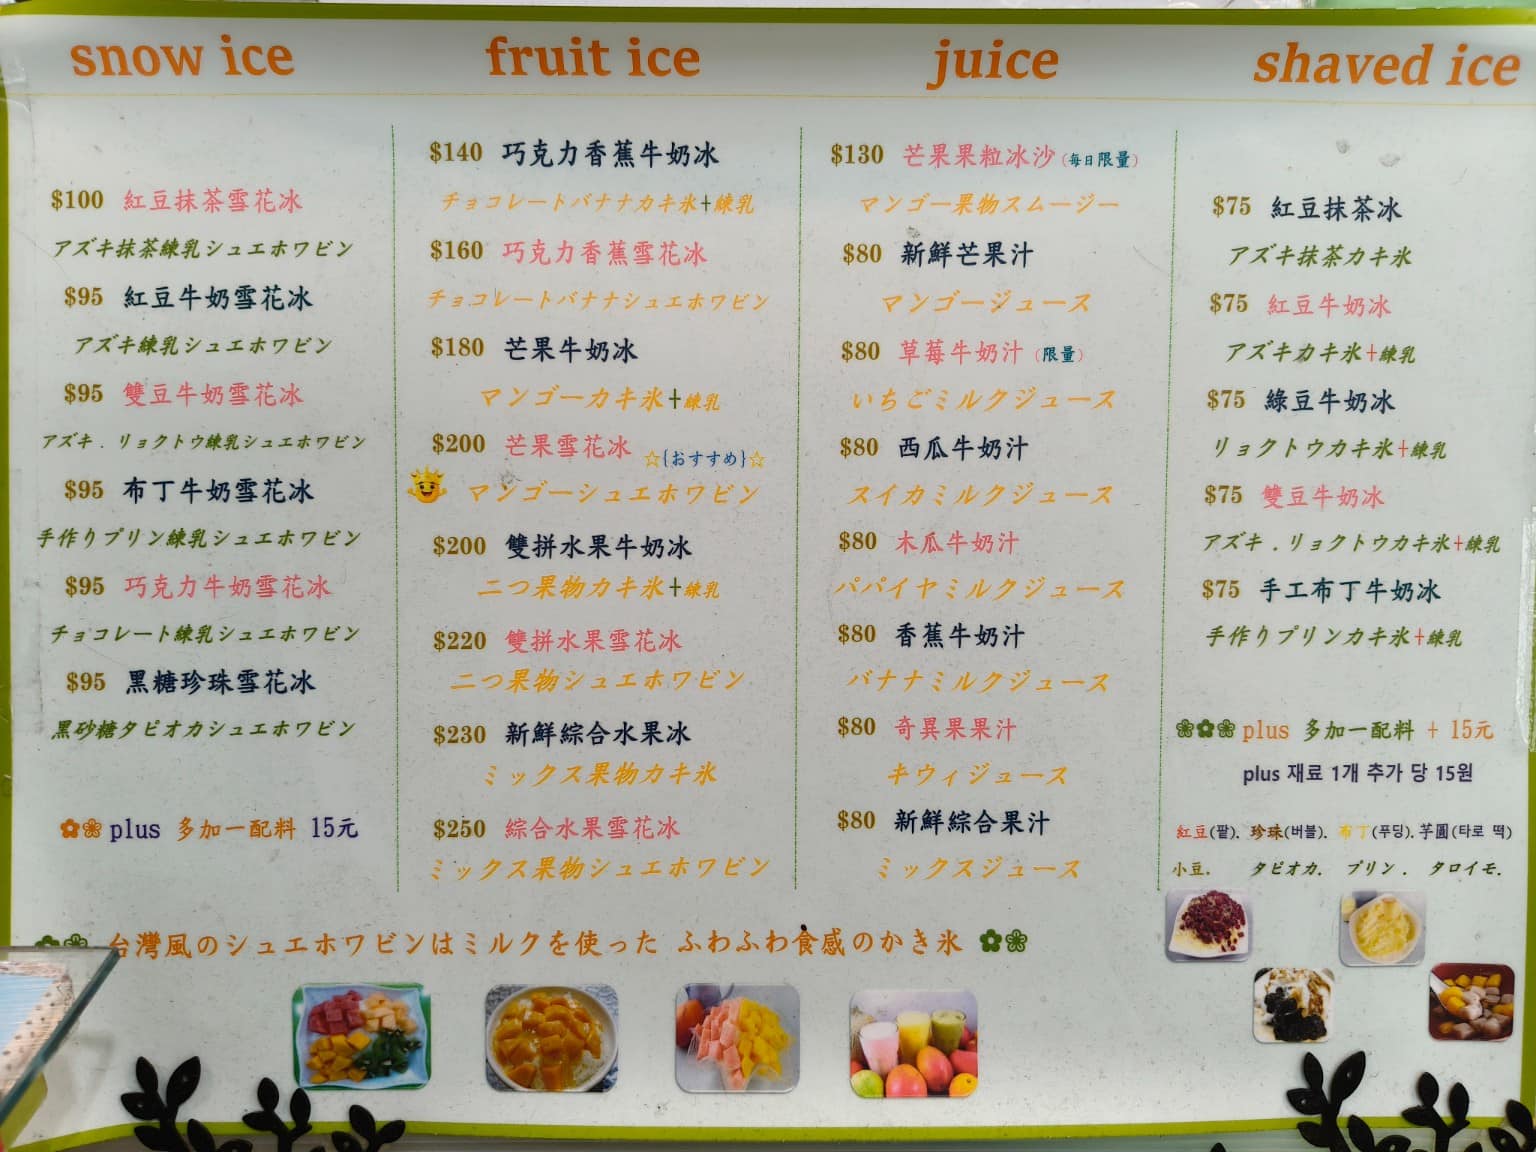 snow ice
$100 紅豆抹茶雪花冰
アズキ抹茶練乳シュエホワビン
$95 紅豆牛奶雪花冰
アズキ練乳シュエホワビン
$95 雙豆牛奶雪花冰
アズキ．リョクトウ練乳シュエホワビン
$95 布丁牛奶雪花冰
手作りプリン練乳シュエホワビン
$95 巧克力牛奶雪花冰
チョコレート練乳シュエホワビン
$95 黑糖珍珠雪花冰
黒砂糖タピオカシュエホワビン
plus 多加一配料 15元
fruit ice
$140 巧克力香蕉牛奶冰
チョコレートバナナカキ氷+練乳
$160 巧克力香蕉雪花冰
チョコレートバナナシュエホワビン
$180 芒果牛奶冰
マンゴーカキ氷+練乳
$200 芒果雪花冰 ☆{おすすめ}☆
マンゴーシュエホワビン
$200 雙拼水果牛奶冰
二つ果物カキ氷+練乳
$220 雙拼水果雪花冰
二つ果物シュエホワビン
$230 新鮮綜合水果冰
ミックス果物カキ氷
$250 綜合水果雪花冰
ミックス果物シュエホワビン
juice
$130 芒果果粒冰沙(每日限量)
マンゴー果物スムージー
$80 新鮮芒果汁
マンゴージュース
$80 草莓牛奶汁 (限量)
いちごミルクジュース
$80 西瓜牛奶汁
スイカミルクジュース
$80 木瓜牛奶汁
パパイヤミルクジュース
$80 香蕉牛奶汁
バナナミルクジュース
$80 奇異果果汁
キウィジュース
$80 新鮮綜合果汁
ミックスジュース
shaved ice
$75 紅豆抹茶冰
アズキ抹茶カキ氷
$75 紅豆牛奶冰
アズキカキ氷+練乳
$75 綠豆牛奶冰
リョクトウカキ氷+練乳
$75 雙豆牛奶冰
アズキ．リョクトウカキ氷+練乳
$75 手工布丁牛奶冰
手作りプリンカキ氷+練乳
plus 多加一配料 + 15元
plus 재료 1개 추가 당 15원
紅豆(팥). 珍珠(버블). 布丁(푸딩). 芋圓(타로 떡)
小豆. タピオカ. プリン. タロイモ.
台灣風のシュエホワビンはミルクを使った ふわふわ食感のかき氷